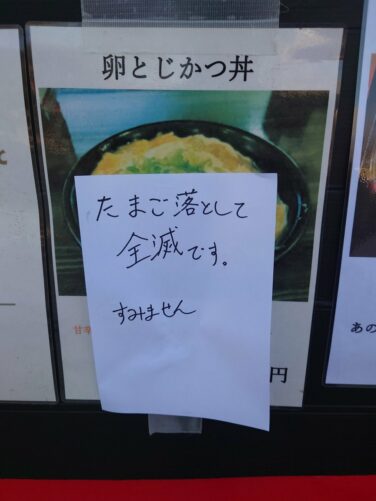 卵とじかつ丼
たまご落として
全滅です。
すみません
甘辛
円
あの